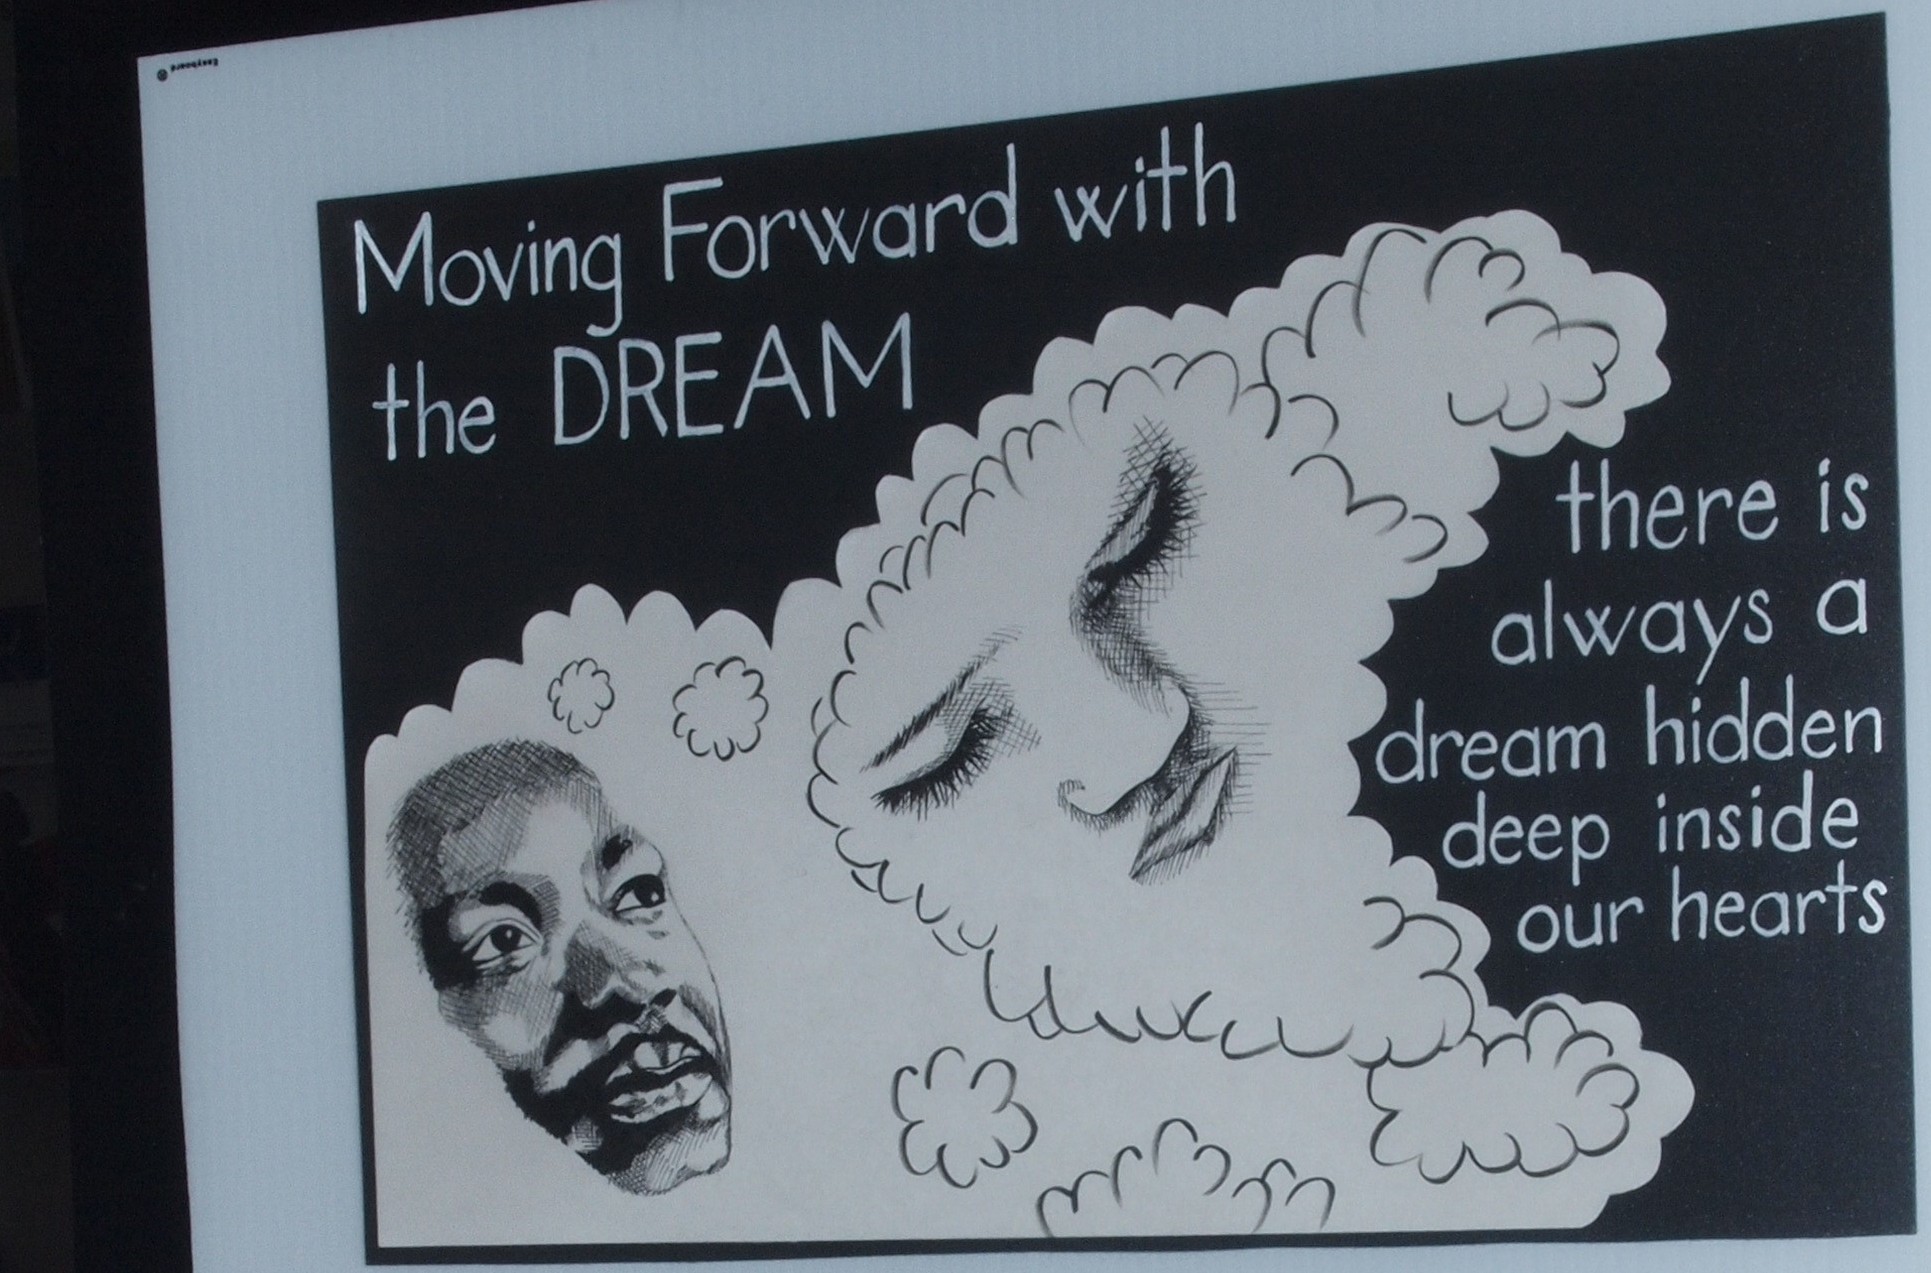 Easyboard
Moving Forward with
the DREAM
there is
always a
dream hidden
deep inside
our hearts